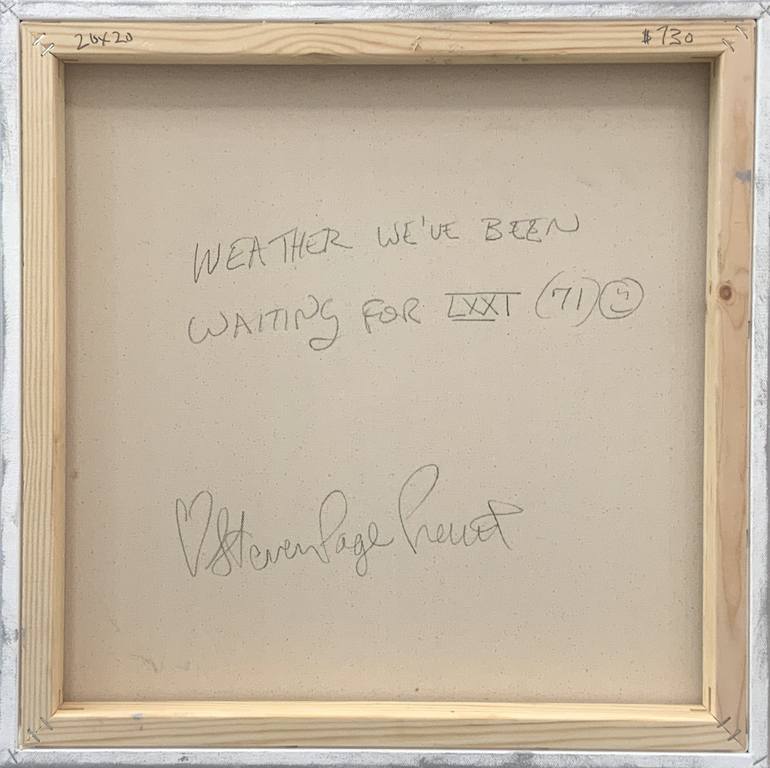 20x20
$730
WEATHER WE'VE BEEN
WAITING FOR LXXI (71)
Steven Page Prewitt